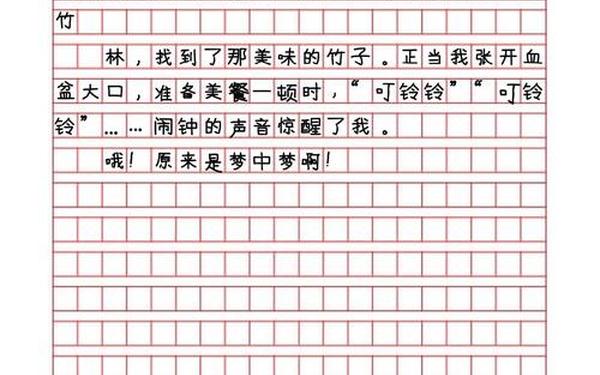 竹
林，找到了那美味的竹子。正当我张开血
盆大口，准备美餐一顿时，“叮铃铃”“叮铃
铃”……闹钟的声音惊醒了我。
哦！原来是梦中梦啊！